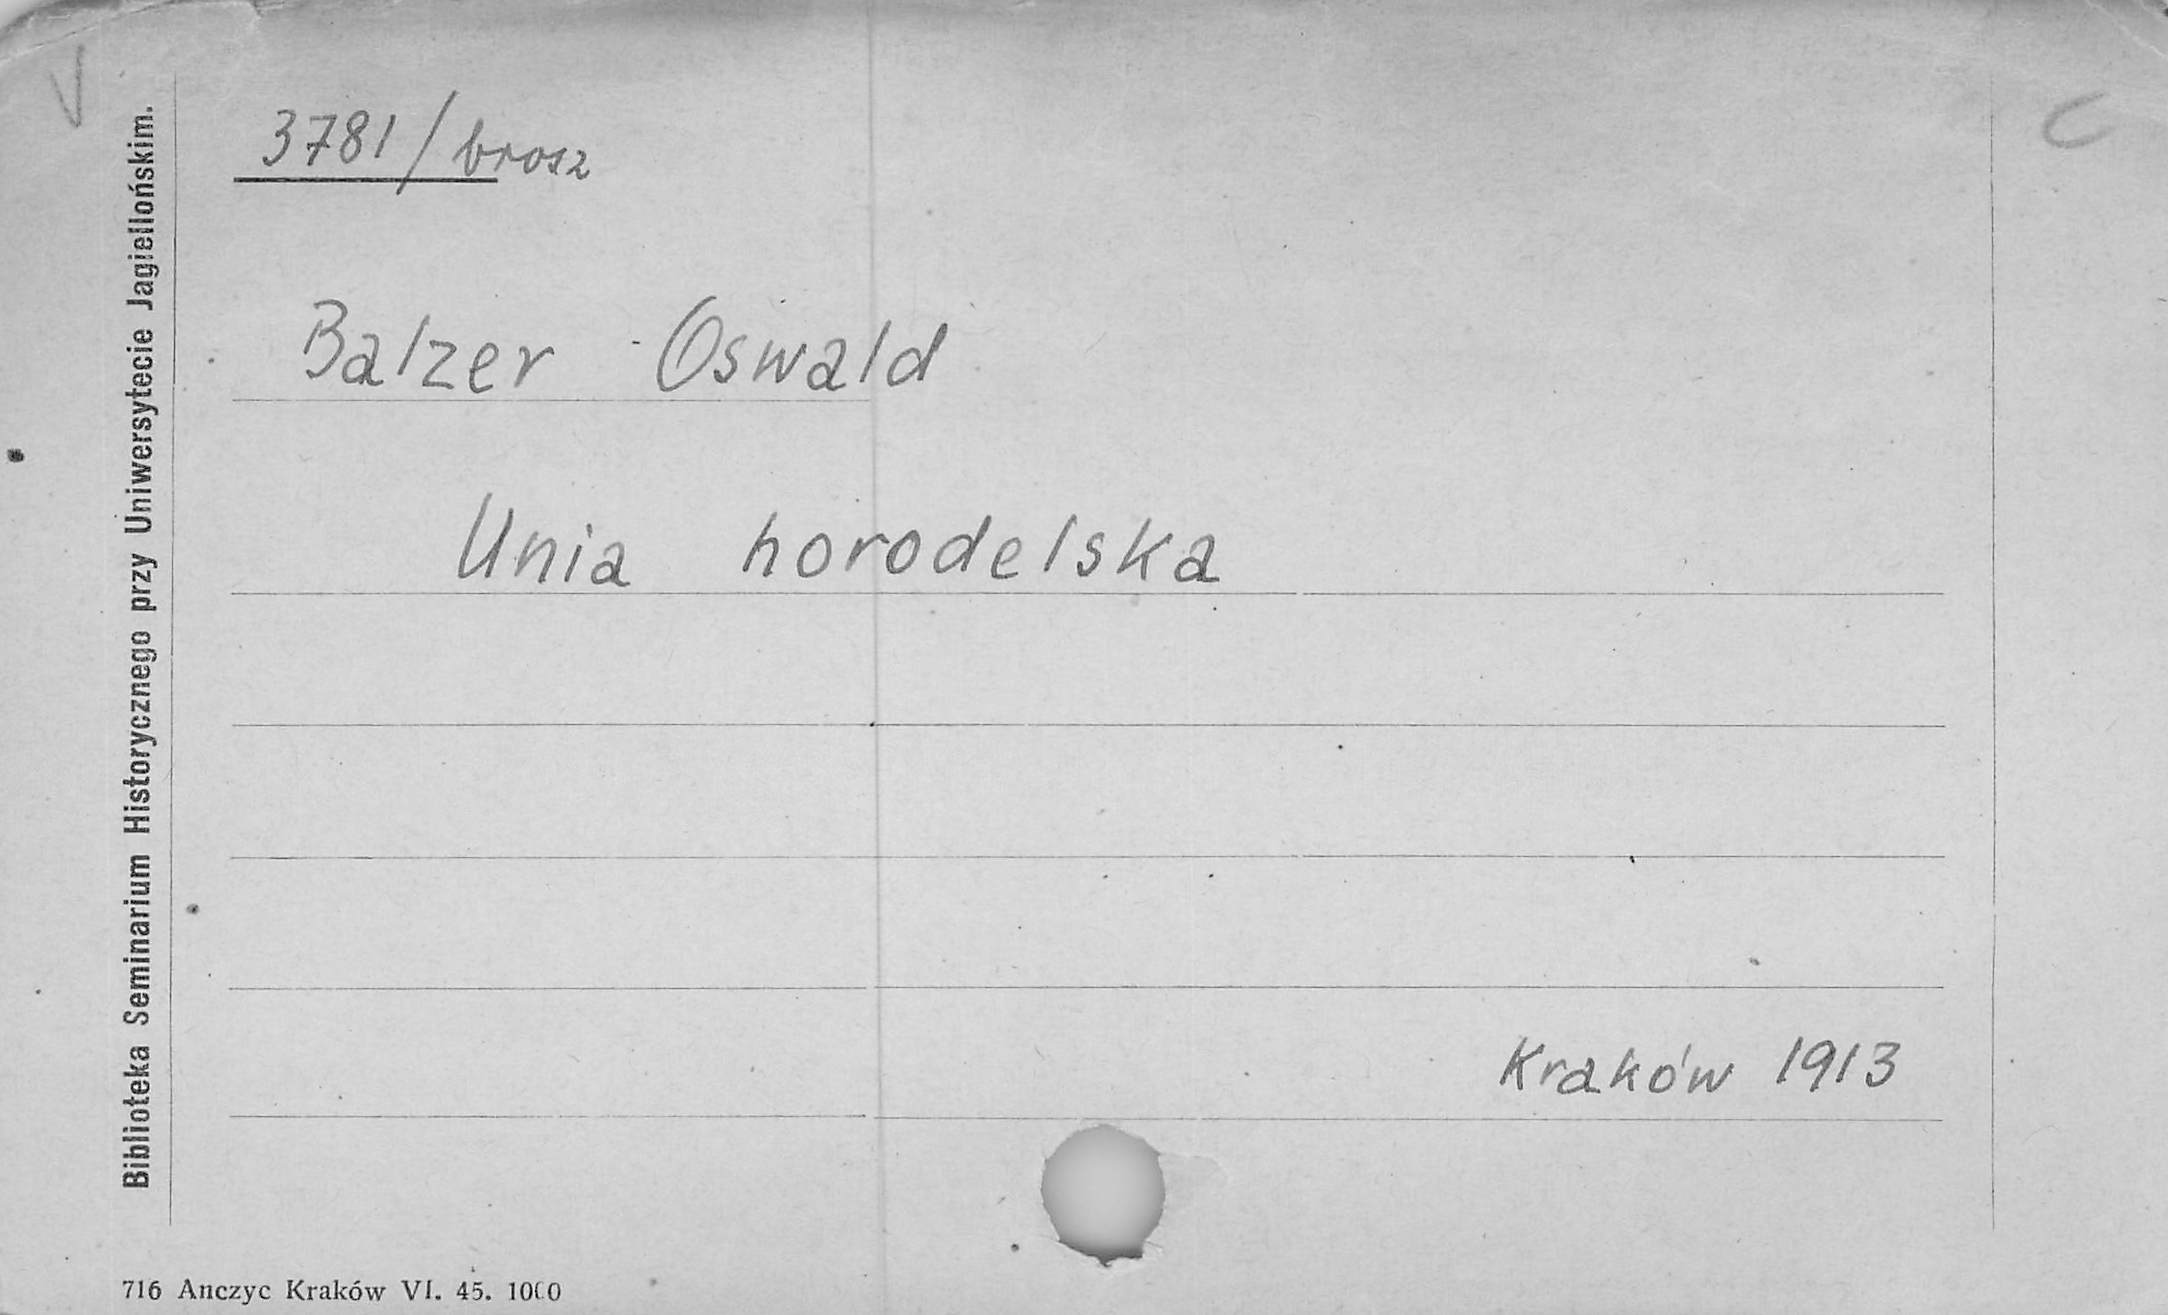 V
C
3781/brosz
Balzer Oswald
Unia horodelska
Kraków 1913
Biblioteka Seminarium Historycznego przy Uniwersytecie Jagiellońskim.
716 Anczyc Kraków VI. 45. 1000